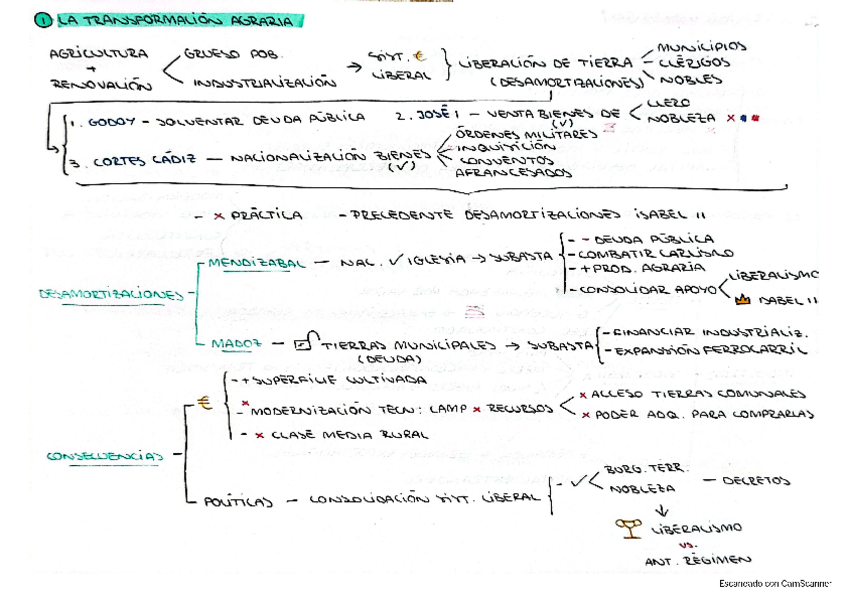 1 LA TRANSFORMACIÓN AGRARIA
AGRICULTURA + RENOVACIÓN
GRUESO POB.
INDUSTRIALIZACIÓN
→ SIST. € LIBERAL
LIBERACIÓN DE TIERRA (DESAMORTIZACIONES)
MUNICIPIOS
CLÉRIGOS
NOBLES
1. GODOY - SOLVENTAR DEUDA PÚBLICA
2. JOSÉ I - VENTA BIENES DE (✓)
CLERO
NOBLEZA x
3. CORTES CÁDIZ - NACIONALIZACIÓN BIENES (✓)
ÓRDENES MILITARES
INQUISICIÓN
CONVENTOS
AFRANCESADOS
- x PRÁCTICA
- PRECEDENTE DESAMORTIZACIONES ISABEL II
DESAMORTIZACIONES
MENDIZABAL - NAC. ✓ IGLESIA → SUBASTA
- - DEUDA PÚBLICA
- COMBATIR CARLISMO
- + PROD. AGRARIA
- CONSOLIDAR APOYO
LIBERALISMO
ISABEL II
MADOZ - TIERRAS MUNICIPALES → SUBASTA
(DEUDA)
- FINANCIAR INDUSTRIALIZ.
- EXPANSIÓN FERROCARRIL
CONSECUENCIAS
€
- + SUPERFICIE CULTIVADA
- x MODERNIZACIÓN TECN: CAMP x RECURSOS
x ACCESO TIERRAS COMUNALES
x PODER ADQ. PARA COMPRARLAS
- x CLASE MEDIA RURAL
POLÍTICAS - CONSOLIDACIÓN SIST. LIBERAL
- ✓
BURG. TERR.
NOBLEZA
- DECRETOS
↓
LIBERALISMO
vs.
ANT. RÉGIMEN
Escaneado con CamScanner